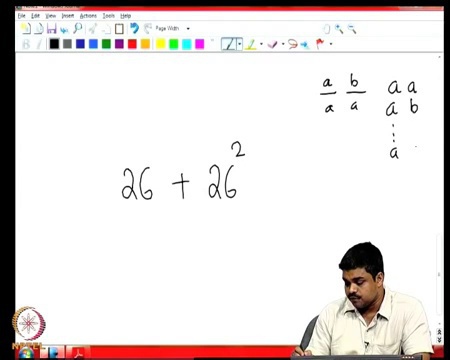 File Edit View Insert Actions Tools Help
Page Width
a b a a
a a a b
⋮
a
26 + 26²